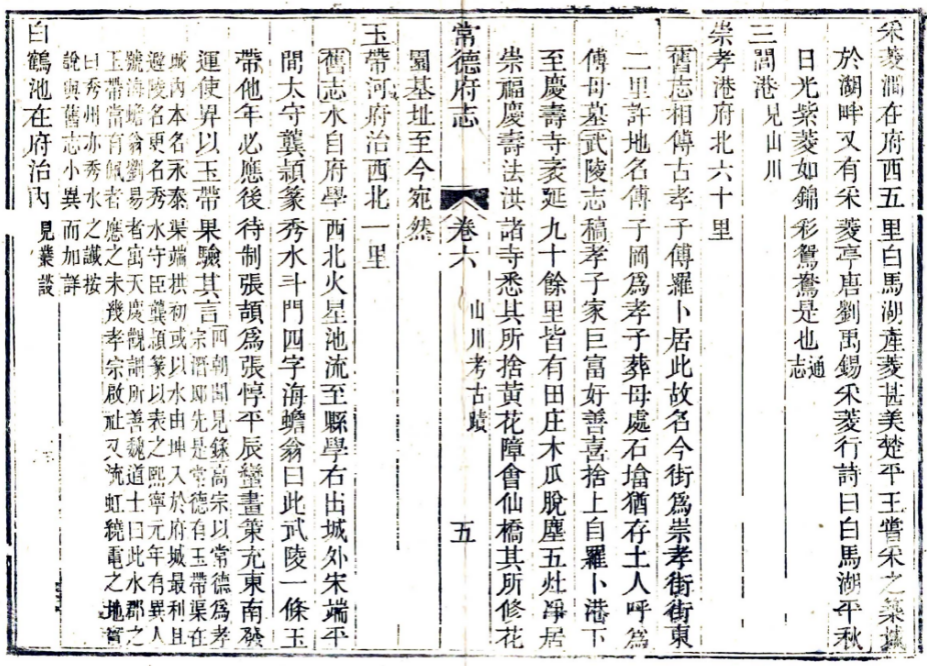 采菱澗在府西五里白馬湖產菱甚美楚平王嘗采之築
於湖畔又有采菱亭唐劉禹錫采菱行詩曰白馬湖平秋
日光紫菱如錦彩鴛鴦是也通志
三閭港見山川
崇孝港府北六十里
舊志相傳古孝子傅羅卜居此故名今街爲崇孝街街東
二里許地名傅子岡爲孝子葬母處石墖猶存土人呼爲
傅母墓武陵志稿孝子家巨富好善喜捨上自羅卜港下
至慶壽寺袤延九十餘里皆有田庄木瓜脫塵五灶淨居
崇福慶壽法洪諸寺悉其所捨黃花障會仙橋其所修花
常德府志 卷六 山川考古蹟 五
園基址至今宛然
玉帶河府治西北一里
舊志水自府學西北火星池流至縣學右出城外宋端平
間太守龔頴篆秀水斗門四字海蟾翁曰此武陵一條玉
帶他年必應後待制張頡爲張惇平辰蠻畫策充東南發
運使昇以玉帶果驗其言四朝聞見錄高宗以常德爲孝
宗潛邸先是常德有玉帶渠在
城內本名永泰渠端拱初或以水由坤入於府城最利且
避陵名更名秀水守臣龔頴篆以表之熙寧元年有異人
號海蟾翁劉易者寓天慶觀謂所善魏道士曰此水郡之
玉帶當有佩者應之未幾孝宗啟祉又流虹繞電之地實
曰秀州亦秀水之讖按
說與舊志小異而加詳
白鶴池在府治內見叢談